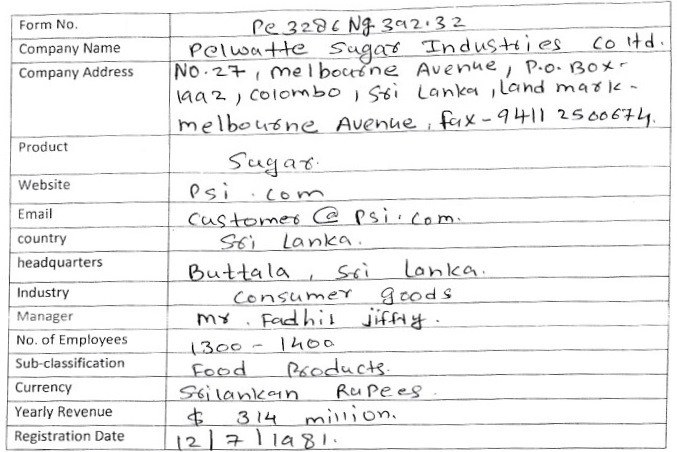 Form No. Pe3286Ng392.32
Company Name Pelwatte Sugar Industries co ltd.
Company Address NO.27, melbourne Avenue, P.O. Box-
1992, colombo, Sri Lanka, Land mark -
melbourne Avenue, fax - 9411 2500674.
Product Sugar.
Website psi.com
Email customer@psi.com.
country Sri Lanka.
headquarters Buttala, Sri Lanka.
Industry consumer goods
Manager mr. Fadhil jiffry.
No. of Employees 1300 - 1400
Sub-classification Food Products.
Currency Srilankan Rupees.
Yearly Revenue $ 314 million.
Registration Date 12|7|1981.